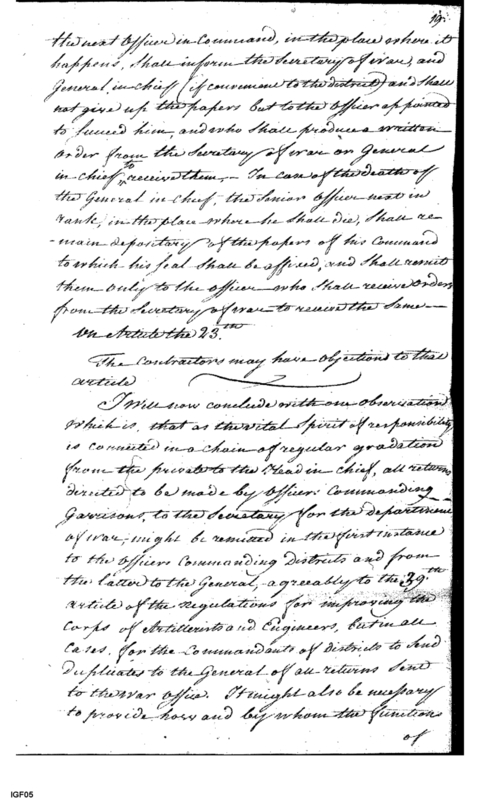 19.
the next Officer in Command, in the place where it
happens, Shall inform the Secretary of war, and
General, in chief (if convenient to the district) and Shall
not give up the papers but to the Officer appointed
to Succeed him, and who Shall produce a written
Order from the Secretary of war or General
in chief to receive them, – In case of the death of
the General in chief, the Senior Officer next in
rank, in the place where he Shall die, Shall re-
-main depositary of the papers of his Command
to which his seal Shall be affixed, and Shall remit
them only to the Officer who Shall receive Orders
from the Secretary of war to receive the Same –
On Article the 23.th
The Contractors may have Objections to that
article
I Will now conclude with one observation
Which is, that as the vital Spirit of responsibility
is connected in a chain of regular gradation
from the private to the Head in chief, all returns
directed to be made by Officers Commanding
Garrisons, to the Secretary for the department
of war, might be remitted in the first instance
to the Officers Commanding districts and from
the latter to the General, agreeably to the 39.th
article of the regulations for improving the
Corps of Artillerists and Engineers, but in all
Cases, for the Commandants of districts to Send
duplicates to the General of all returns Sent
to the War Office. It might also be necessary
to provide how and by whom the functions
of
IGF05